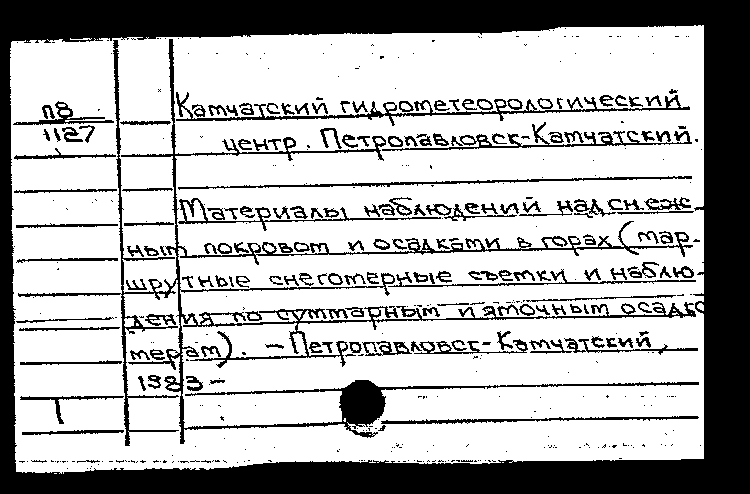 П8
1127
Камчатский гидрометеорологический
центр. Петропавловск-Камчатский.
Материалы наблюдений над снеж-
ным покровом и осадками в горах (мар-
шрутные снегомерные съемки и наблю-
дения по суммарным и ямочным осадко
мерам). – Петропавловск-Камчатский,
1983 –
1